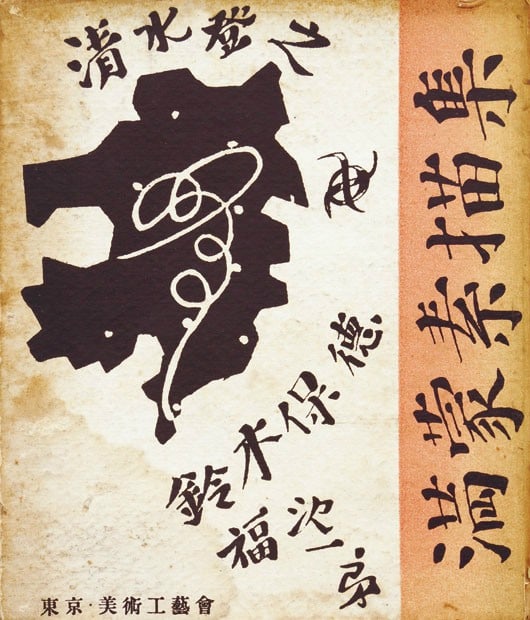 満蒙素描集
清水登之
鈴木保徳
福沢一郎
東京・美術工藝會